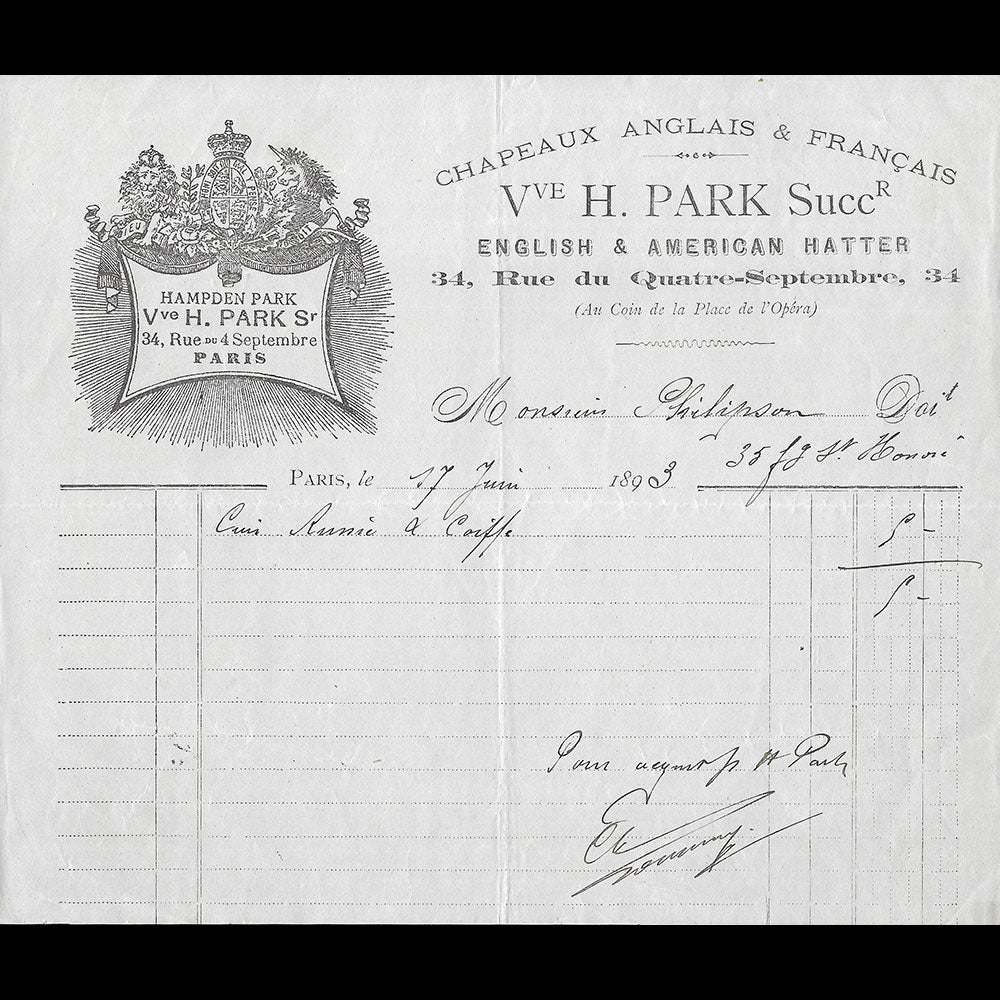 HAMPDEN PARK
Vve H. PARK Sr
34, Rue DU 4 Septembre
PARIS
CHAPEAUX ANGLAIS & FRANÇAIS
VVE H. PARK SuccR
ENGLISH & AMERICAN HATTER
34, Rue du Quatre-Septembre, 34
(Au Coin de la Place de l'Opéra)
Monsieur Philipson Doit
35 fg St Honoré
PARIS, le 17 Juin 1893
Cuir & Coiffe 5 -
5 -
Pour acquit H Park